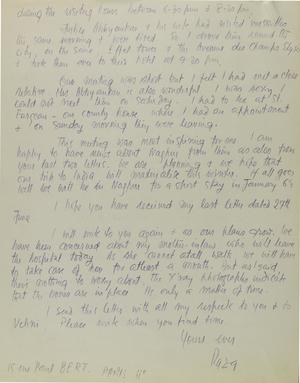 during the visiting hours between 6:30 pm & 8:30 pm.
& his wife had visited
the same morning & were tired. So I drove them around the
city, on the same & the Avenue des Champs Elysées
& took them over to their flat at 9.30 pm.
Our meeting was short but I felt I had met a close
relative. is also wonderful. I was sorry I
could not meet them on Saturday. I had to be at St.
Fargeau - our country house where I had an appointment
& on Sunday morning they were leaving.
This meeting was most inspiring for me. I am
happy to have news about Nagpur from them as also from
your last two letters. We are planning & we hope that
our trip to India will materialise this winter. If all goes
well we will be in Nagpur for a short stay in January 6
I hope you have received my last letter dated 29th
June.
I will write to you again & as our plans grow. We
have been concerned about my mother-in-law who will leave
the hospital today. As she cannot at all walk we will have
to take care of her for at least a month. But as I said
there is nothing to worry about the X-ray photographs indicate
that the bones are in place. It's only a matter of time.
I send this letter with all my respects to you & to
Please write when you find time.
Yours ever
Raza
15 rue Paul BERT. PARIS 11e